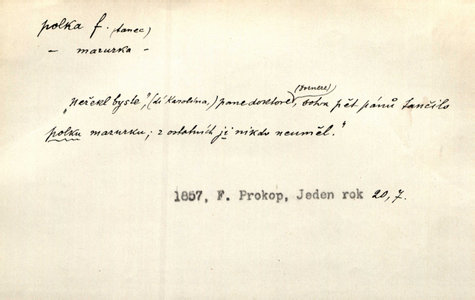 polka f. (tanec)
- mazurka -
(Bornere)
„neřekl byste", (dí Karolina,) pane doktore, sotva pět pánů tančilo
polku mazurku; z ostatních ji nikdo neuměl."
1857, F. Prokop, Jeden rok 20, 7.